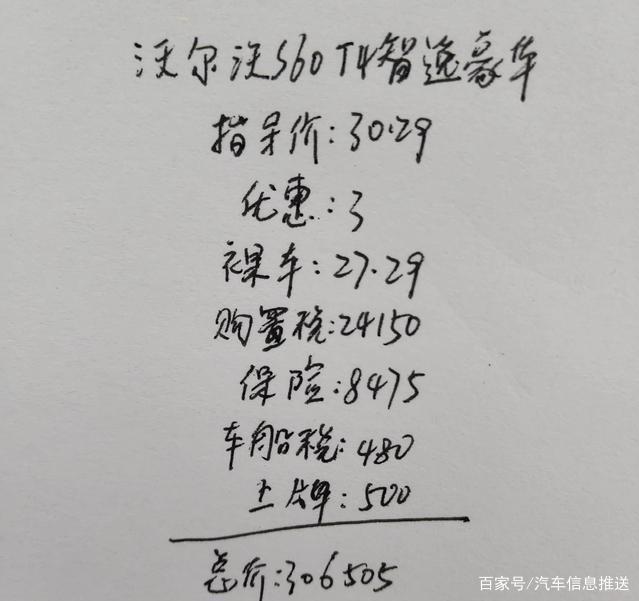 沃尔沃S60 T4智逸豪华
指导价:30.29
优惠:3
裸车:27.29
购置税:24150
保险:8475
车船税:480
上牌:500
总价:306505
百家号/汽车信息推送